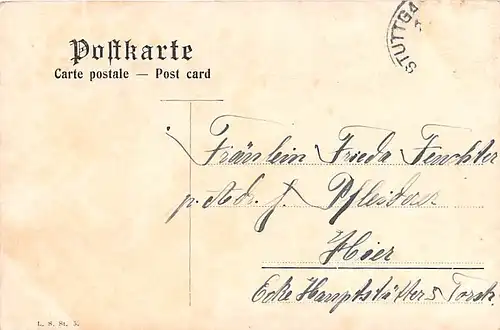 Postkarte
Carte postale — Post card
STUTTGA
Fräulein Frieda Feuchter
p. Adr. J. Pfleider
Hier
Ecke Hauptstätter u Torstr.
L. S. St. 5.